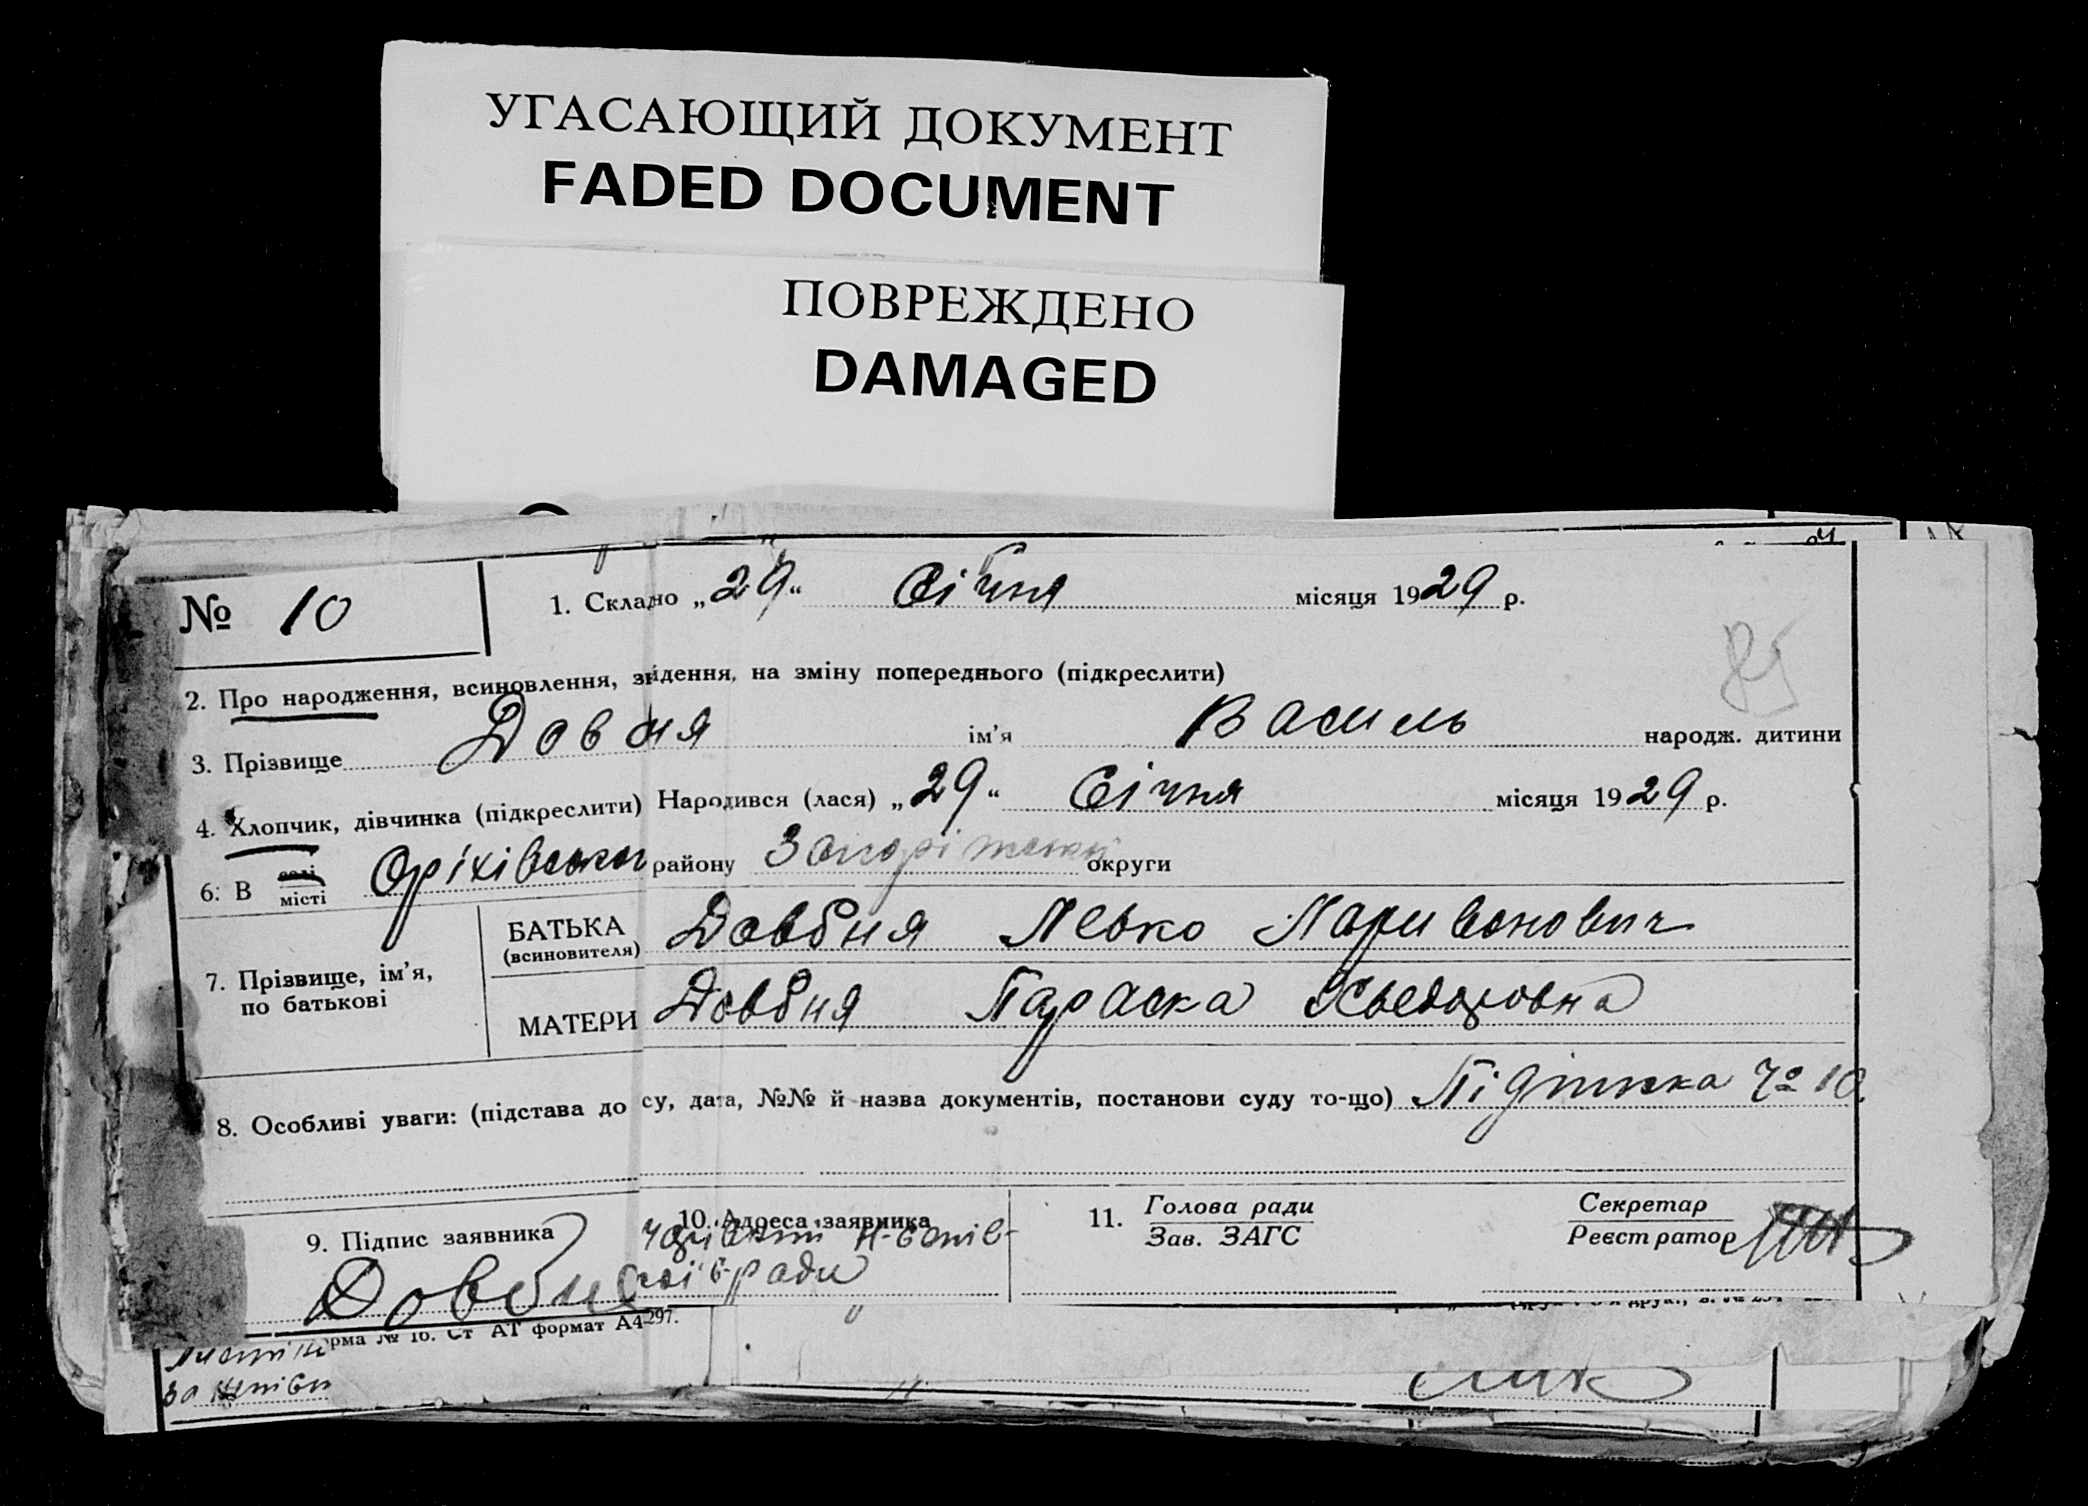 УГАСАЮЩИЙ ДОКУМЕНТ
FADED DOCUMENT
ПОВРЕЖДЕНО
DAMAGED
№ 10
1. Складно „29“ Січня місяця 1929 р.
85
2. Про народження, всиновлення, звідення, на зміну попереднього (підкреслити)
3. Прізвище Довбня ім'я Василь народж. дитини
4. Хлопчик, дівчинка (підкреслити) Народився (лася) „29“ Січня місяця 1929 р.
6: В селі
місті Оріхівського району Запоріжської округи
7. Прізвище, ім'я,
по батькові
БАТЬКА
(всиновителя) Довбня Левко Паривонович
МАТЕРИ Довбня Параска Хведоровна
8. Особливі уваги: (підстава до су, дата, №№ й назва документів, постанови суду то-що) Підписка № 10.
9. Підпис заявника
Довбня
10. Адреса заявника
ради
11. Голова ради
Зав. ЗАГС
Секретар
Реєстратор
орма № 16. Ст АТ формат А4 297.